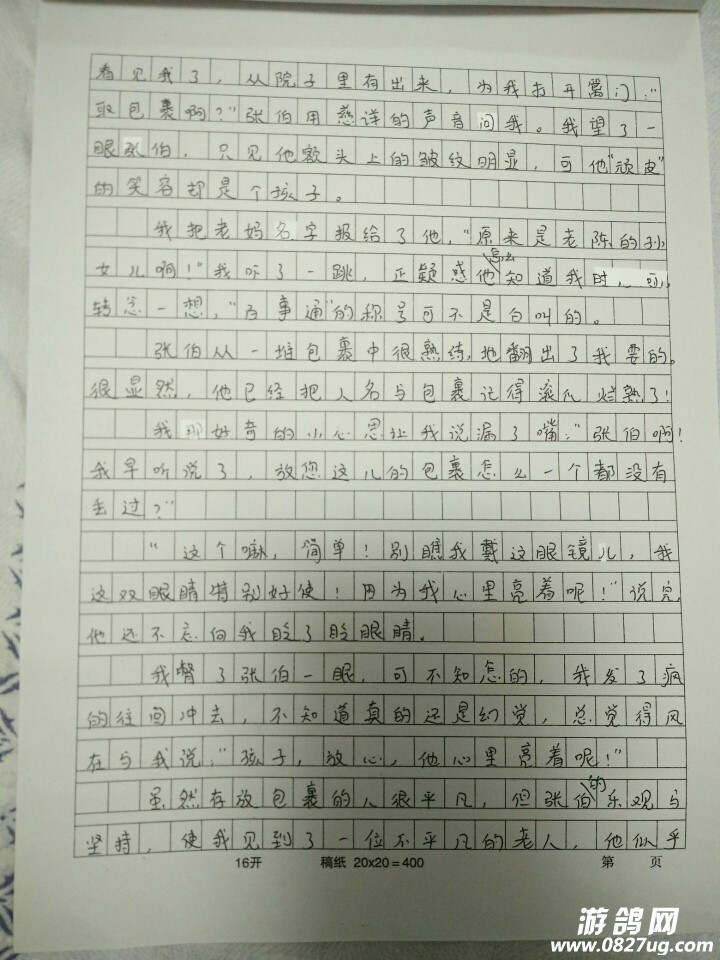 看见我了，从院子里有出来，为我拉开窗门："
取包裹啊？"张伯用慈详的声音问我。我望了一
眼张伯，只见他额头上的皱纹明显，可他"顽皮"
的笑容却是个孩子。
我把老妈名字报给了他，"原来是老陈的孙
女儿啊！"我吓了一跳，正疑惑他怎么知道我时，可
转念一想，"百事通"的称号可不是白叫的。
张伯从一堆包裹中很熟练地翻出了我要的。
很显然，他已经把人名与包裹记得滚瓜烂熟了！
我那好奇的小心思让我说漏了嘴："张伯啊！
我早听说了，放您这儿的包裹怎么一个都没有
丢过？"
"这个嘛，简单！别瞧我戴这眼镜儿，我
这双眼睛特别好使！因为我心里亮着呢！"说完，
他还不忘向我眨了眨眼睛。
我瞥了张伯一眼，可不知怎的，我发了疯
的往回冲去，不知道真的还是幻觉，总觉得风
在与我说："孩子，放心，他心里亮着呢！"
虽然存放包裹的人很平凡，但张伯的乐观与
坚持，使我见到了一位不平凡的老人，他似乎
16开 稿纸 20x20=400 第 页
游鸽网
www.0827ug.com